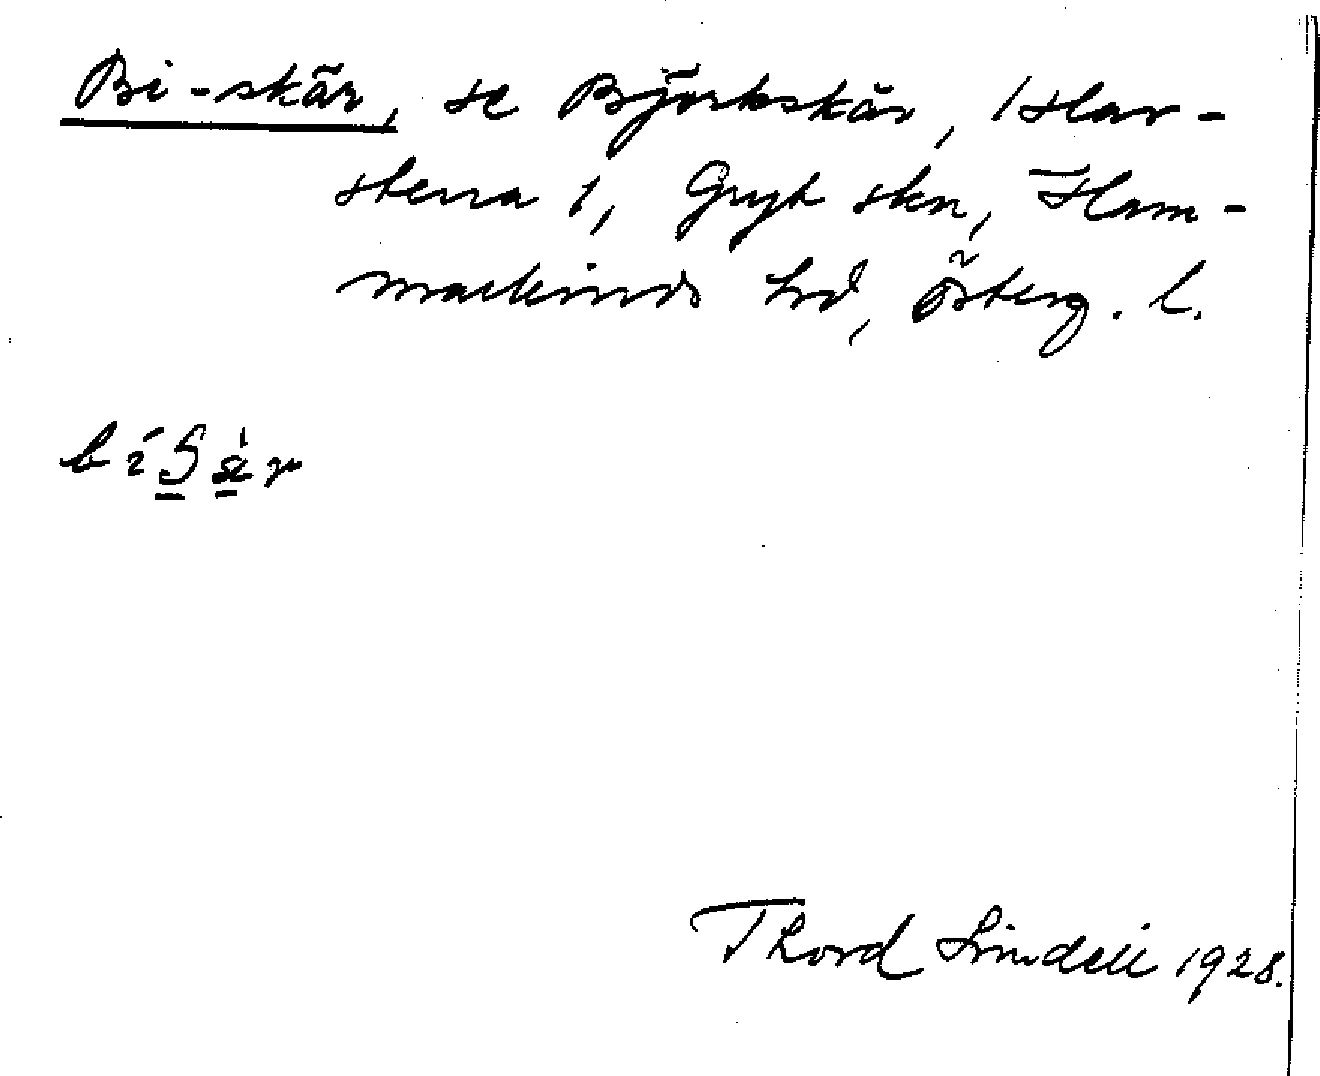 Bi-skär, se Björkskär, Har-
stena 1, Gryt skn, Ham-
markinds hd, Österg. l.
Thord Lindell 1928.